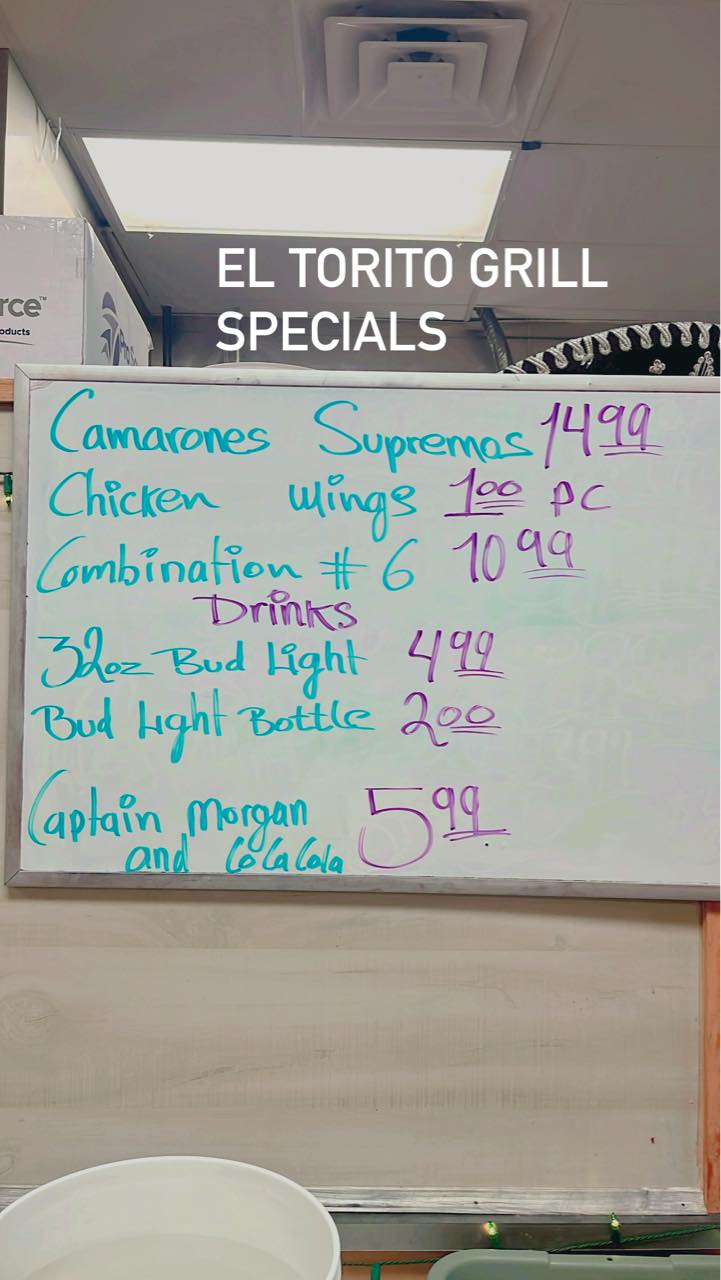 EL TORITO GRILL
SPECIALS
rce™
oducts
Camarones Supremos 14 99
Chicken wings 1 00 PC
Combination # 6 10 99
Drinks
32oz Bud Light 4 99
Bud Light Bottle 2 00
Captain Morgan 5 99
and CoCaCola